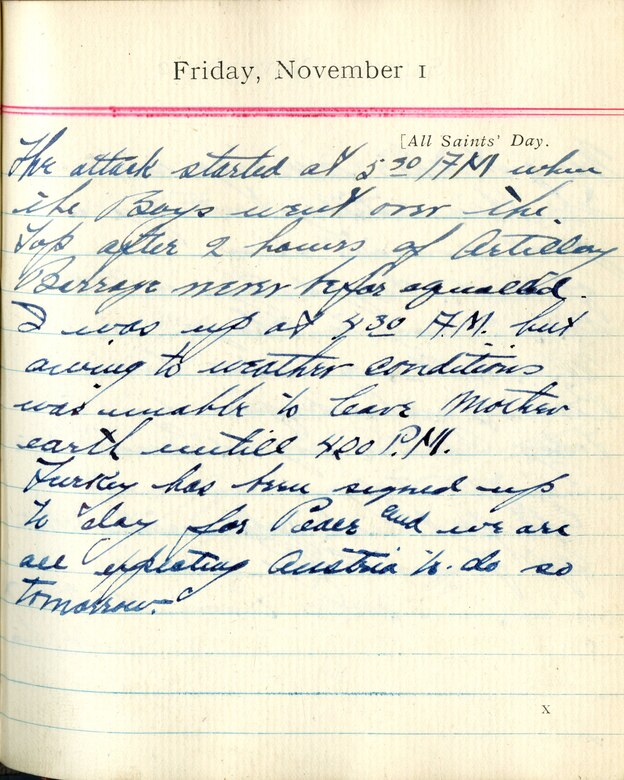 Friday, November 1
[All Saints' Day.
The attack started at 5 30 A.M when
the Boys went over the
Top after 2 hours of Artillay
Barrage never befor equalled.
I was up at 4 30 A.M. but
owing to weather conditions
was unable to leave Mother
earth untill 400 P.M.
Turkey has been signed up
to day for Peace and we are
all expecting Austria to do so
tomorrow.
x